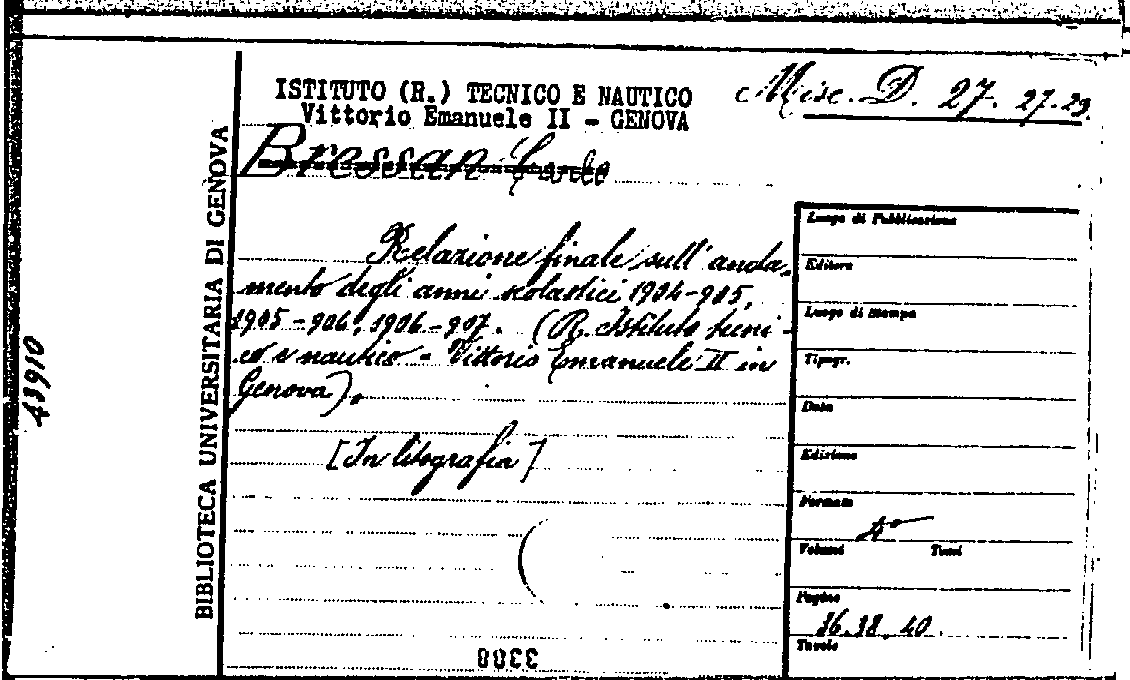 ISTITUTO (R.) TECNICO E NAUTICO
Vittorio Emanuele II - GENOVA
Misc. D. 27. 27-29.
Bressan Carlo
Relazione finale sull' anda-
mento degli anni scolastici 1904-905,
1905-906, 1906-907. (R. Istituto tecni-
co e nautico - Vittorio Emanuele II in
Genova).
[In litografia]
BIBLIOTECA UNIVERSITARIA DI GENOVA
43910
Luogo di Pubblicazione
Editore
Luogo di stampa
Tipogr.
Data
Edizione
Formato
4°
Volumi Tomi
Pagine
36. 38. 40.
Tavole